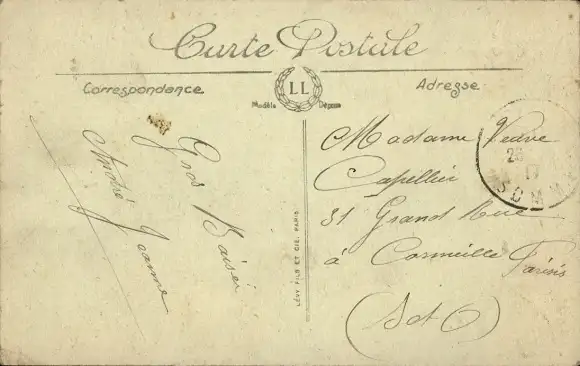 Carte Postale
Correspondance
LL
Modèle Déposé
Adresse
Gros Baiser
André Jeanne
LÉVY FILS ET CIE, PARIS
Madame Veuve
Capellier
31 Grand Rue
à Cormeille Parisis
(S et O)
23
17
SOMM